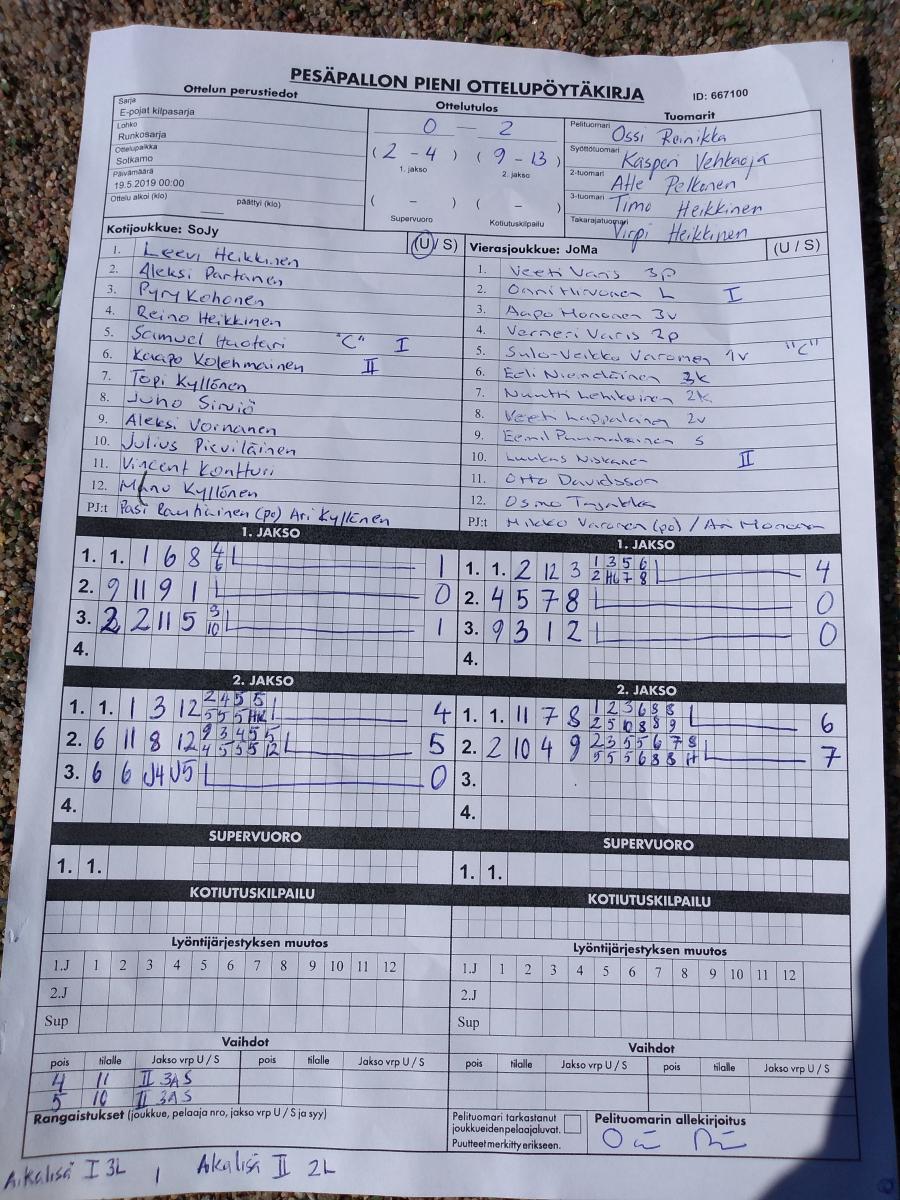 PESÄPALLON PIENI OTTELUPÖYTÄKIRJA
ID: 667100
Ottelun perustiedot
Sarja
E-pojat kilpasarja
Lohko
Runkosarja
Ottelupaikka
Sotkamo
Päivämäärä
19.5.2019 00:00
Ottelu alkoi (klo) ___ päättyi (klo)
Ottelutulos
0 — 2
(2 - 4) (9 - 13)
1. jakso 2. jakso
( - ) ( - )
Supervuoro Kotiutuskilpailu
Tuomarit
Pelituomari Ossi Reinikka
Syöttötuomari Kasperi Vehkaoja
2-tuomari Atte Pelkonen
3-tuomari Timo Heikkinen
Takarajatuomari Virpi Heikkinen
Kotijoukkue: SoJy (U / S)
1. Leevi Heikkinen
2. Aleksi Partanen
3. Pyry Kohonen
4. Reino Heikkinen
5. Samuel Huotari "C" I
6. Kaapo Kolehmainen II
7. Topi Kyllönen
8. Juho Sirviö
9. Aleksi Vornanen
10. Julius Pirviläinen
11. Vincent Kontturi
12. Manu Kyllönen
PJ:t Pasi Rautiainen (po) Ari Kyllönen
Vierasjoukkue: JoMa (U / S)
1. Veeti Varis 3p
2. Onni Hirvonen L I
3. Aapo Mononen 3v
4. Verneri Varis 2p
5. Sulo-Veikko Varonen 1v "C"
6. Eeli 3k
7. Nuutti Lehikoinen 2k
8. Veeti Lappalainen 2v
9. Eemil S
10. Luukas Niskanen II
11. Otto Davidsson
12. Osmo
PJ:t Mikko Varonen (po) / Ari Mononen
1. JAKSO
1. 1. 1 6 8 4 6 1
2. 9 11 9 1 0
3. 2 2 11 5 9 10 1
4.
1. JAKSO
1. 1. 2 12 3 1 3 5 6 2 HL 7 8 4
2. 4 5 7 8 0
3. 9 3 1 2 0
4.
2. JAKSO
1. 1. 1 3 12 2 4 5 5 5 5 5 4
2. 6 11 8 12 9 3 4 5 5 4 5 5 5 12 5
3. 6 6 U4 U5 0
4.
2. JAKSO
1. 1. 11 7 8 1 2 3 6 8 8 2 5 10 8 8 9 6
2. 2 10 4 9 2 3 5 5 6 7 8 5 5 5 6 8 8 11 7
3.
4.
SUPERVUORO
1. 1.
SUPERVUORO
1. 1.
KOTIUTUSKILPAILU
KOTIUTUSKILPAILU
Lyöntijärjestyksen muutos
1.J 1 2 3 4 5 6 7 8 9 10 11 12
2.J
Sup
Lyöntijärjestyksen muutos
1.J 1 2 3 4 5 6 7 8 9 10 11 12
2.J
Sup
Vaihdot
pois tilalle Jakso vrp U / S pois tilalle Jakso vrp U / S
4 11 II 3A S
5 10 II 3A S
Vaihdot
pois tilalle Jakso vrp U / S pois tilalle Jakso vrp U / S
Rangaistukset (joukkue, pelaaja nro, jakso vrp U / S ja syy)
Pelituomari tarkastanut
joukkueiden pelaajaluvat.
Puutteet merkitty erikseen.
Pelituomarin allekirjoitus
Aikalisä I 3L , Aikalisä II 2L